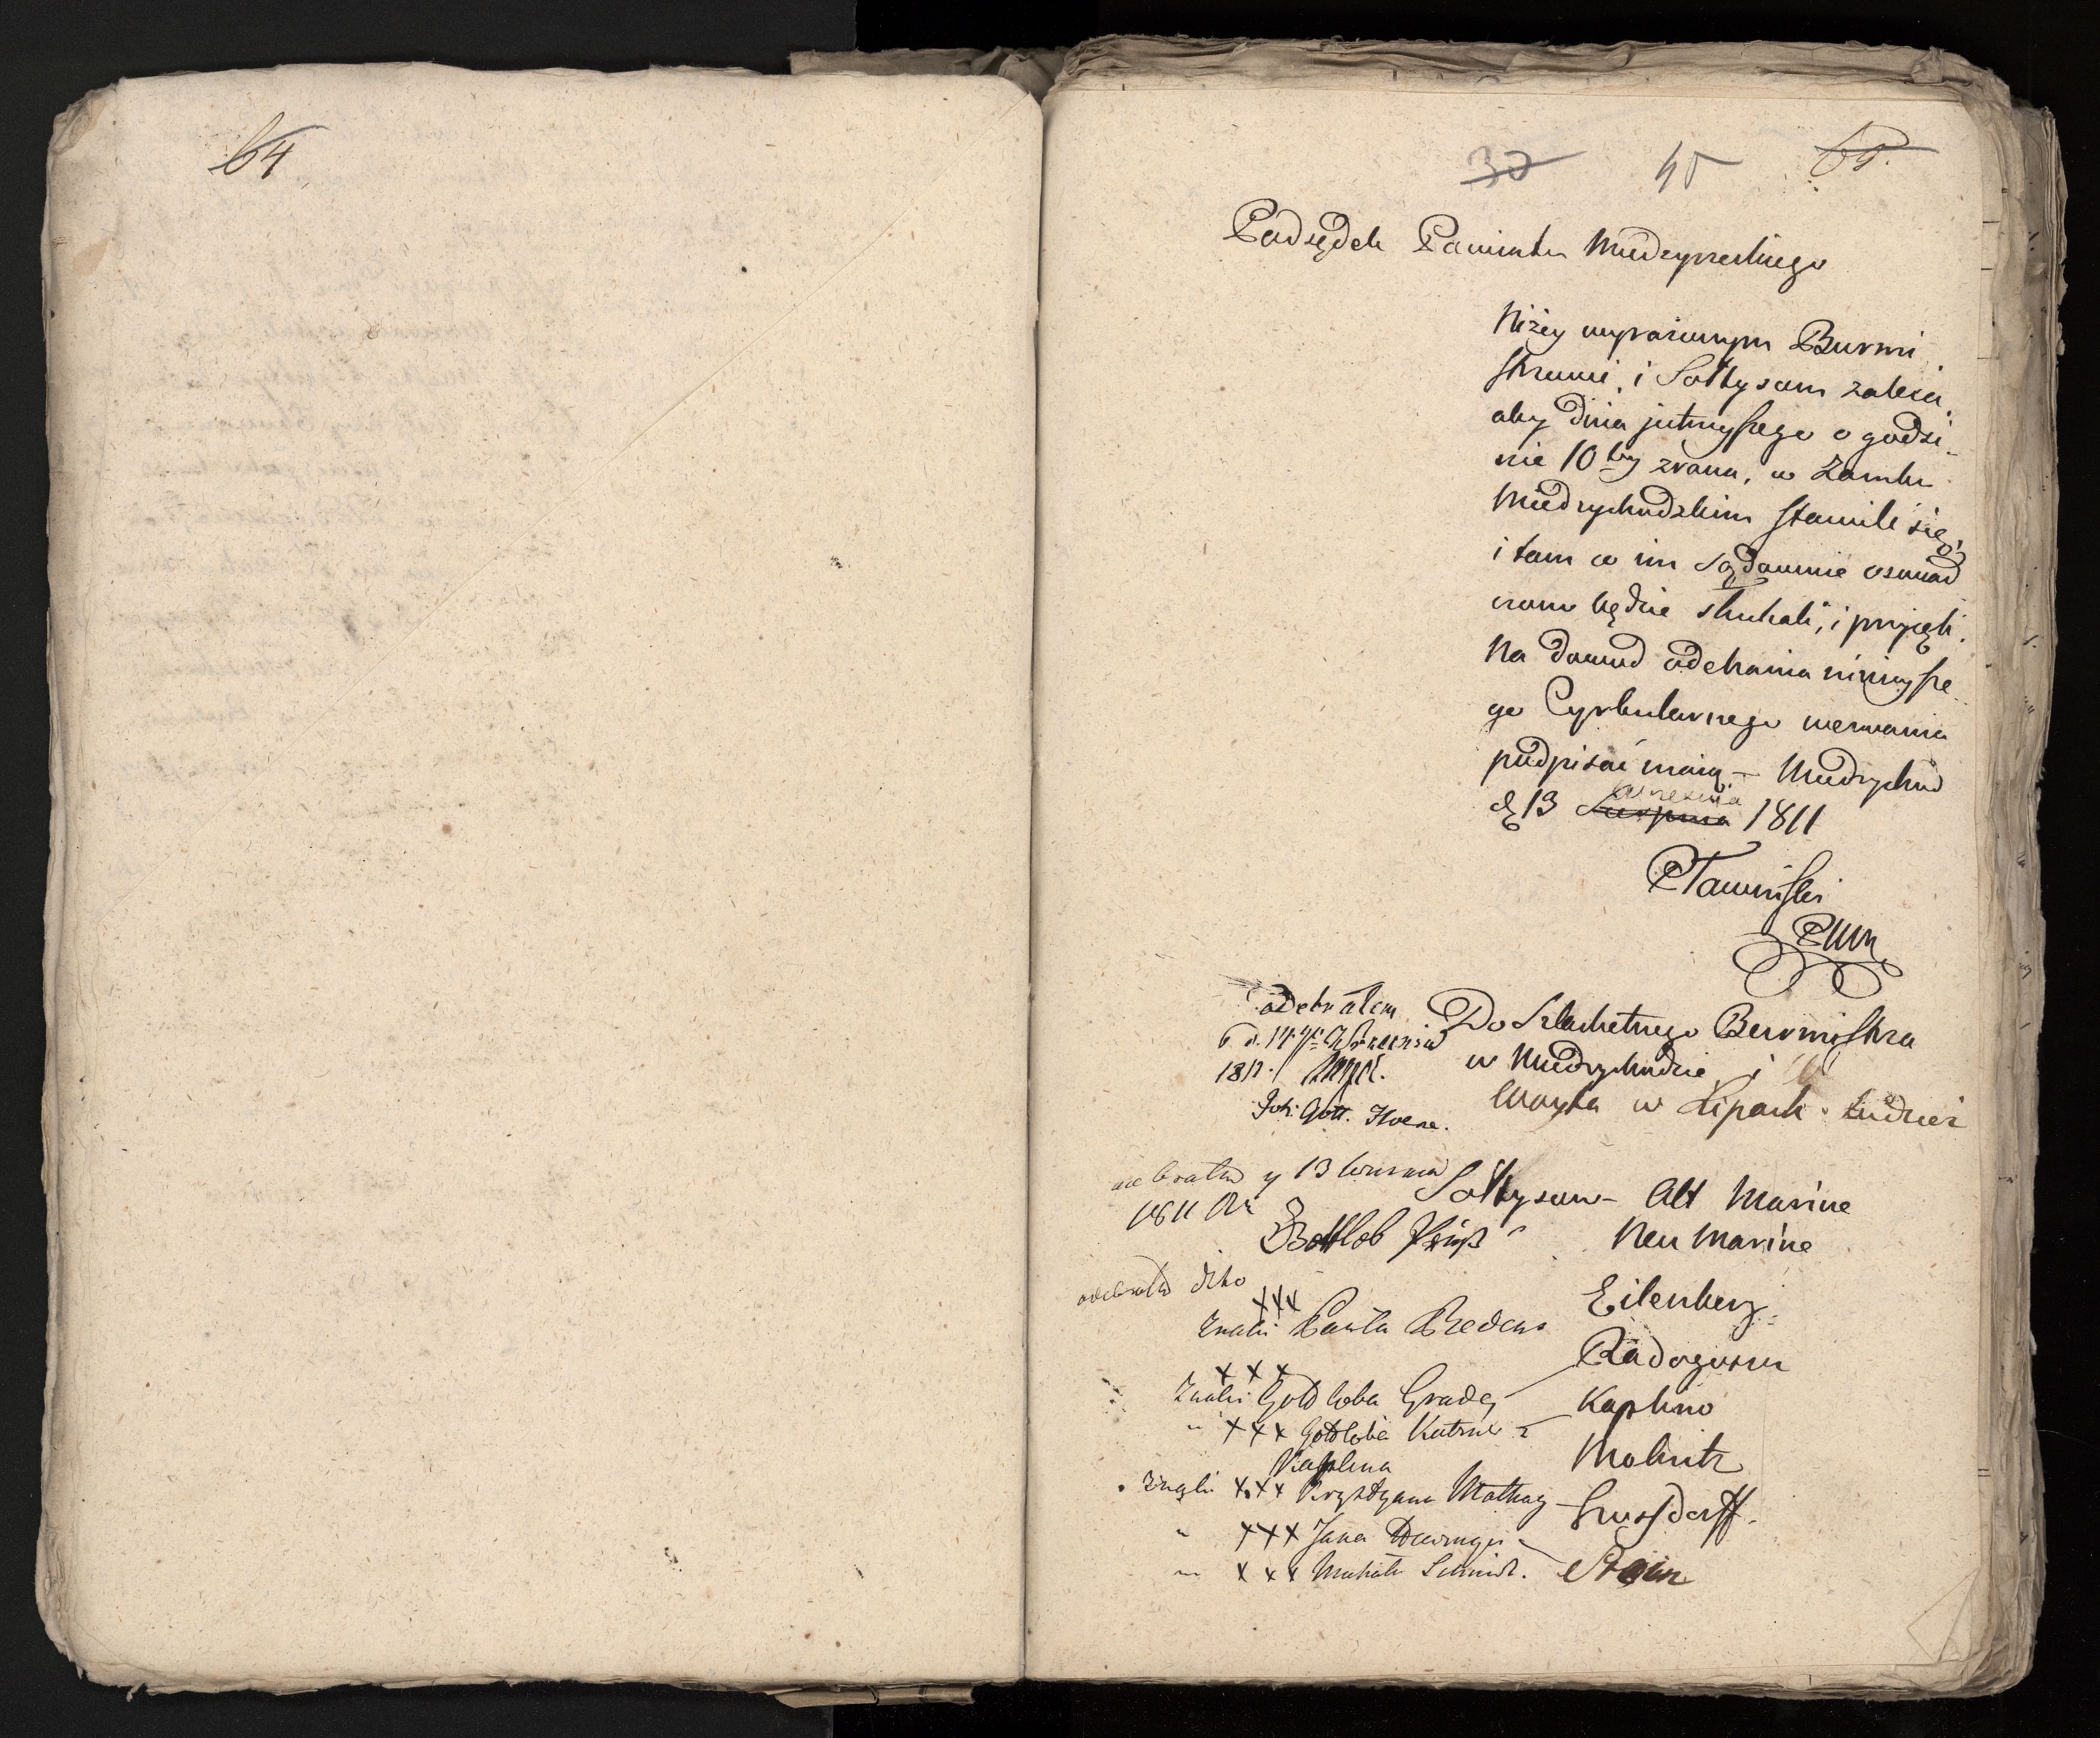 64
37 45 65.
Podsędek Powiatu Miedzyrzeckiego
Niżey wyrażonym Burmi
strzowi, i Sołtysom zaleca,
aby dnia jutrzyszego o godzi-
nie 10tey zrana, w Zamku
Miedzychodzkim stawili się,
i tam co im Sądownie oswiad
czono będzie słuchali, i przyjęli.
Na dowod odebrania ninieysze
go Cyrkularnego wezwania
podpisać maią – Miedzychod
d 13 Sierpnia Wrzesnia 1811
PTawinski
PPM
odebrałem
d. 14 Wrzesnia
1811.
Joh: Gott.
Do Szlachetnego Burmistrza
w Miedzychodzie i
Woyta w Lipach
odebrałem 13 Wrzesnia
1811
Gottlob
Sołtysow – Alt Marine
Neu Marine
odebrałem dito
XXX
Znaki Pawła Bredow
Eilenberg
XXX
Znaki Gottloba Grade
Radogoszcz
" XXX Gottloba Kutzner z
Kaplina
Kaplino
Znaki XXX Krystyana Mathay
Mokritz
" XXX Jana
Gussdorff.
" XXX Michała Schmidt.
Stein